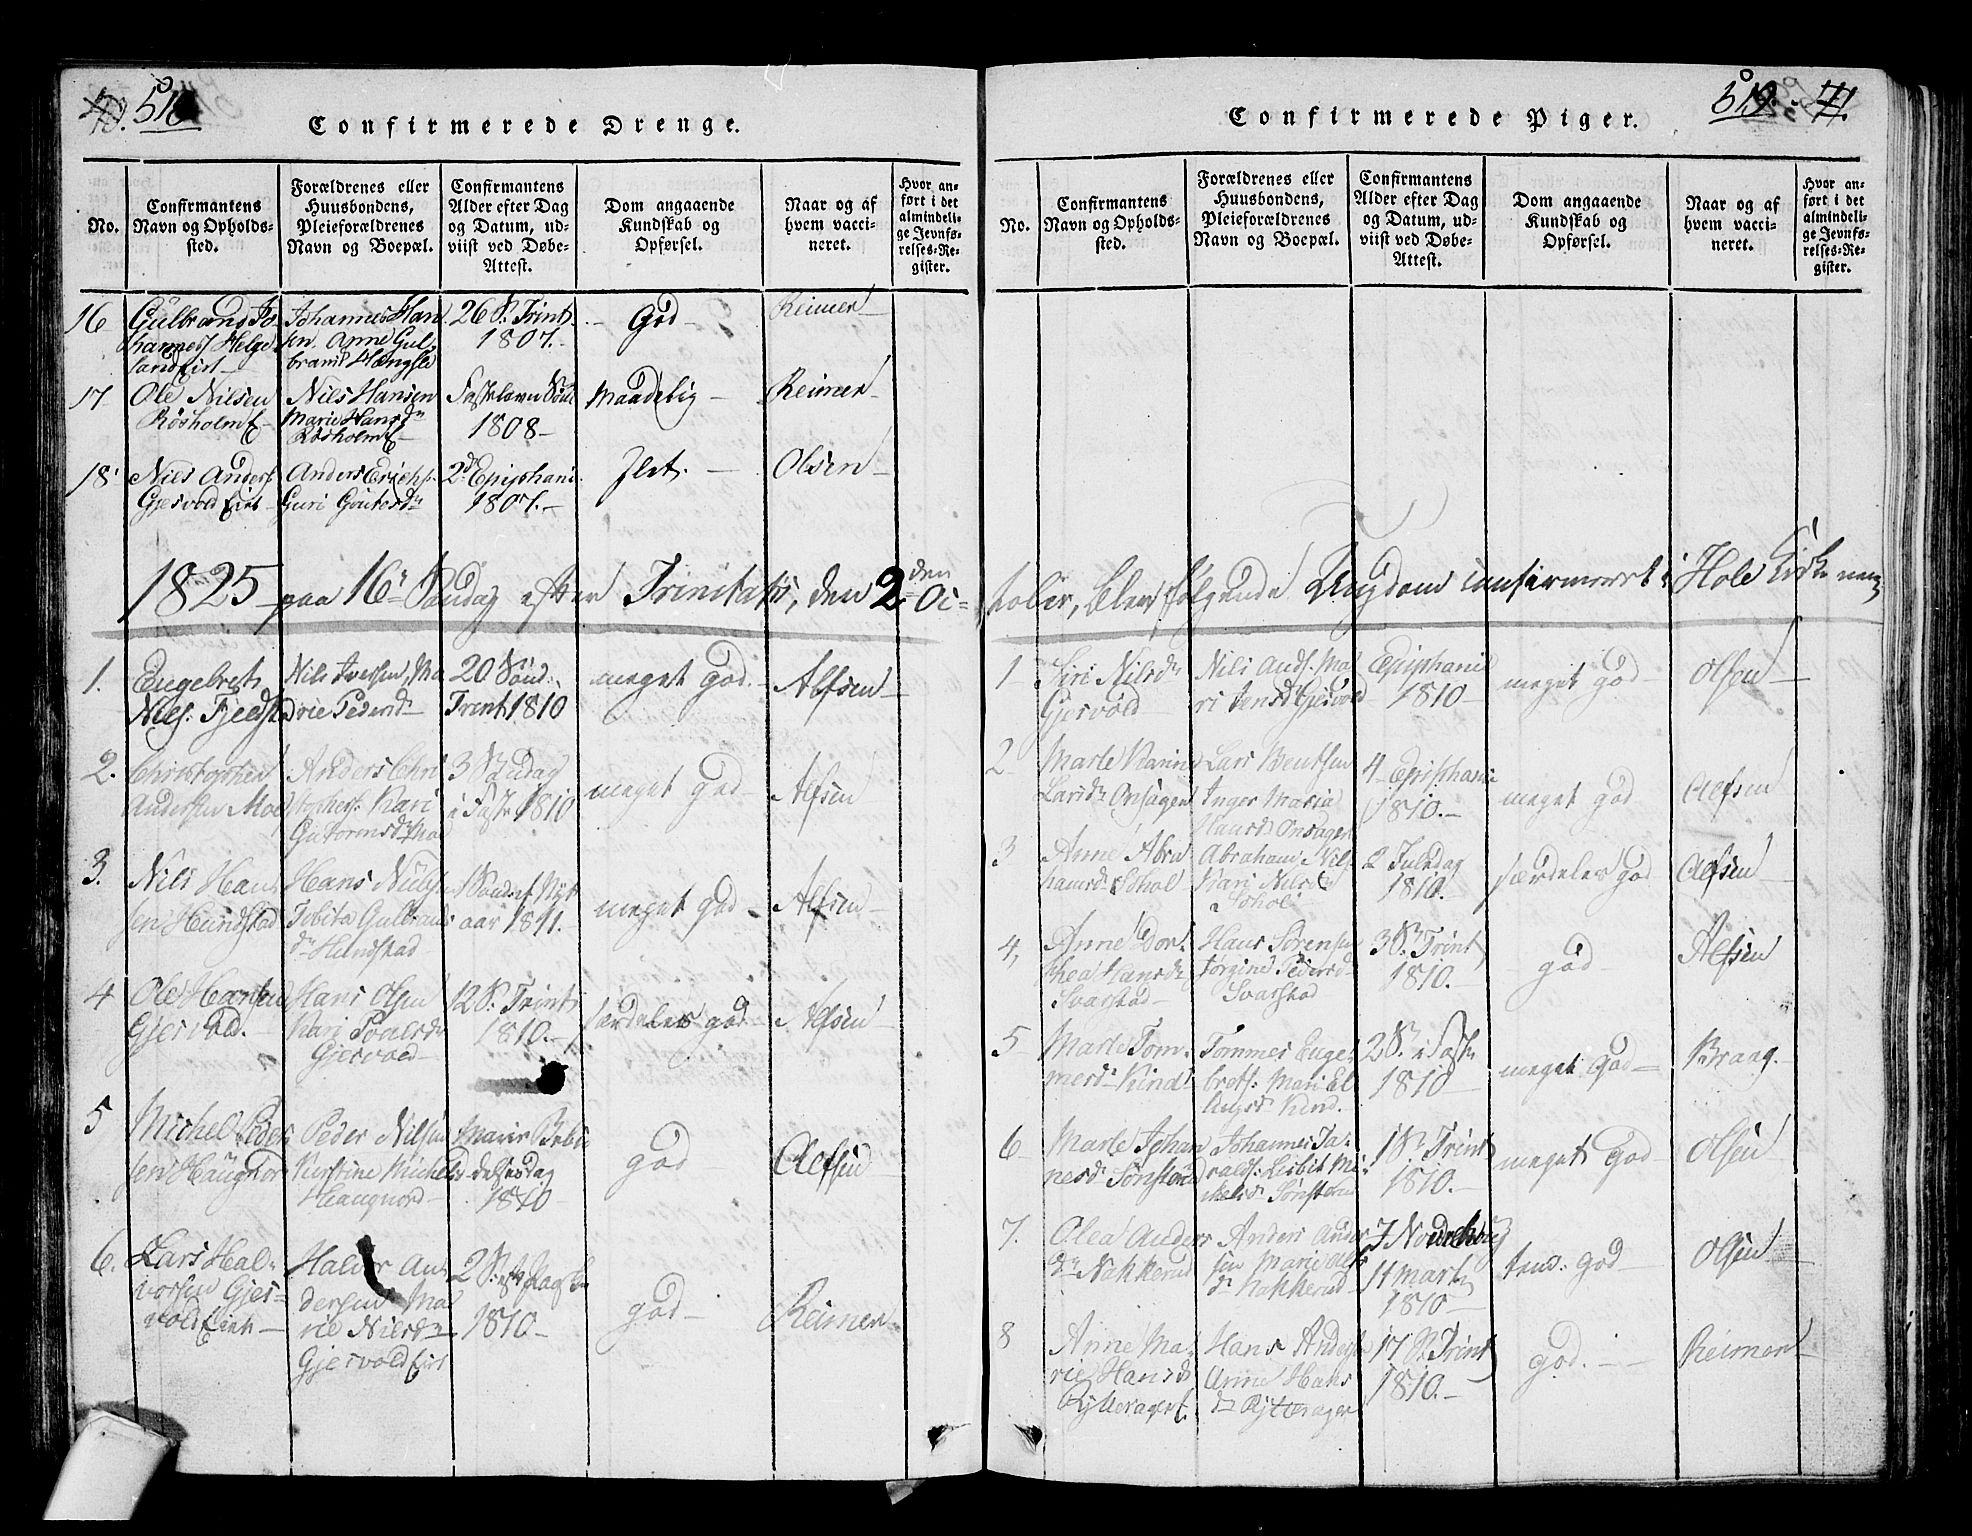 518
Confirmerede Drenge.
No.
Confirmantens
Navn og Opholds-
sted.
Forældrenes eller
Huusbondens,
Pleieforældrenes
Navn og Boepæl.
Confirmantens
Alder efter Dag
og Datum, ud-
viist ved Døbe-
Attest.
Dom angaaende
Kundskab og
Opførsel.
Naar og af
hvem vacci-
neret.
Hvor an-
ført i det
almindeli-
ge Jevnfø-
relses-Re-
gister.
16
Gulbrand Jo-
hannes Helge
land Eiet
Johannes Han
sen. Anne Gul-
brand
26 S. Trint.
1807.
God
Reimer
17
Ole Nilsen
Røsholm E
Nils Hansen
Marie Hansdr
Røsholm E
Fastelavn Sønd
1808
Maadelig
Reimer
18
Nils Anders
Gjesvold Eiet
Anders Erichs
Guri Goutesdr
2d Epiphani
1807.
Slet.
Olsen
1825 paa 16de Søndag efter Trinitatis, den 2den Oc=
1.
Engebret
Niels. Fjeldst
Nils Iversen, Ma
rie Pedersdr
20 Sønd.
Trint 1810
meget God.
Alfsen
2.
Christopher
Andersen Moe
Anders Chri
stophers. Kari
Gutormsdr Moe
3 Søndag
i Fast 1810
meget God
Alfsen
3.
Nils Han
sen Hundstad
Hans Niels
Tobita Gulbrans
dr Hundstad
1 Sønd ef Nyt
aar 1811.
meget god
Alfsen
4
Ole Hansen
Gjesvold.
Hans Olsen
Kari Povelsdr
Gjesvold
12 S. Trint
1810.
særdeles god
Alfsen
5
Michel Peder
sen Haugnor
Peder Nilsen
Kirstine Michels
Haugnord
Mariæ Bebu
delsesdag
1810
god
Alfsen
6.
Lars Hal-
vorsen Gjes=
vold Eiet
Halvor An-
dersen Ma
rie Nilsdr
Gjesvold Eiet
2 S. eft Paaske
1810
god
Reimer
519 71.
Confirmerede Piger.
No.
Confirmantens
Navn og Opholds-
sted.
Forældrenes eller
Huusbondens,
Pleieforældrenes
Navn og Boepæl.
Confirmantens
Alder efter Dag
og Datum, ud-
viist ved Døbe-
Attest.
Dom angaaende
Kundskab og
Opførsel.
Naar og af
hvem vacci-
neret.
Hvor an-
ført i det
almindeli-
ge Jevnfø-
relses-Re-
gister.
tober, blev følgende Ungdom confirmeret i Hole Kirke
1
Siri Nilsdr
Gjesvold
Nils Ands. Ma
ri Jensdr Gjesvold
Epiphani
1810
meget god
Olsen
2
Marte Karine
Larsdr Onsager
Lars Bentsen
Inger Maria
Hansdr Onsager
4 Epiphani
1810.
meget god
Alfsen
3
Anne Abra
hamsdr Sohol
Abraham Nils
Kari Nilsdr
Sohol
2 Juledag
1810.
særdeles god
Alfsen
4,
Anne Dor-
thea Hansdr
Svarstad
Hans Sørensen
Jørgine Pedersdr
Svarstad
3 S. Trint
1810.
god
Alfsen
5
Marte Tom-
mesdr Kind
Tommes Enge-
brets. Mari El
Kind.
2 S. i Fast
1810
meget god
Braag.
6
Marte Johan
nesdr Sønsterud
Johannes Ja-
Lisbit Mi-
kelsdr Sønsterud
1 S. Trint
1810.
meget God
Olsen
7.
Olea Anders
dr Nakkerud
Anders Ander
sen Marie Alfs
dr Nakkerud
11 Marts
1810
god
Olsen
8
Anne Ma-
rie Hansdr
Rytterager E.
Hans Anders
Anne Hans
dr Rytterager
17 S. Trint
1810.
god.
Reimer